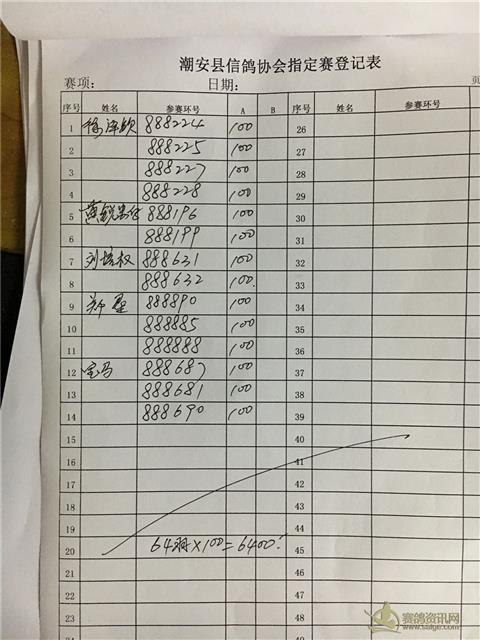 潮安县信鸽协会指定赛登记表
赛项: 日期: 页
序号 姓名 参赛环号 A B 序号 姓名 参赛环号
1 888224 100 26
2 888225 100 27
3 888227 100 28
4 888228 100 29
5 888196 100 30
6 888199 100 31
7 刘培权 888631 100 32
8 888632 100 33
9 888890 100 34
10 888885 100 35
11 888888 100 36
12 宝马 888687 100 37
13 888681 100 38
14 888690 100 39
15 40
16 41
17 42
18 43
19 44
20 64羽×100=6400! 45
21 46
22 47
23 48
24 49
赛鸽资讯网
www.saige.com